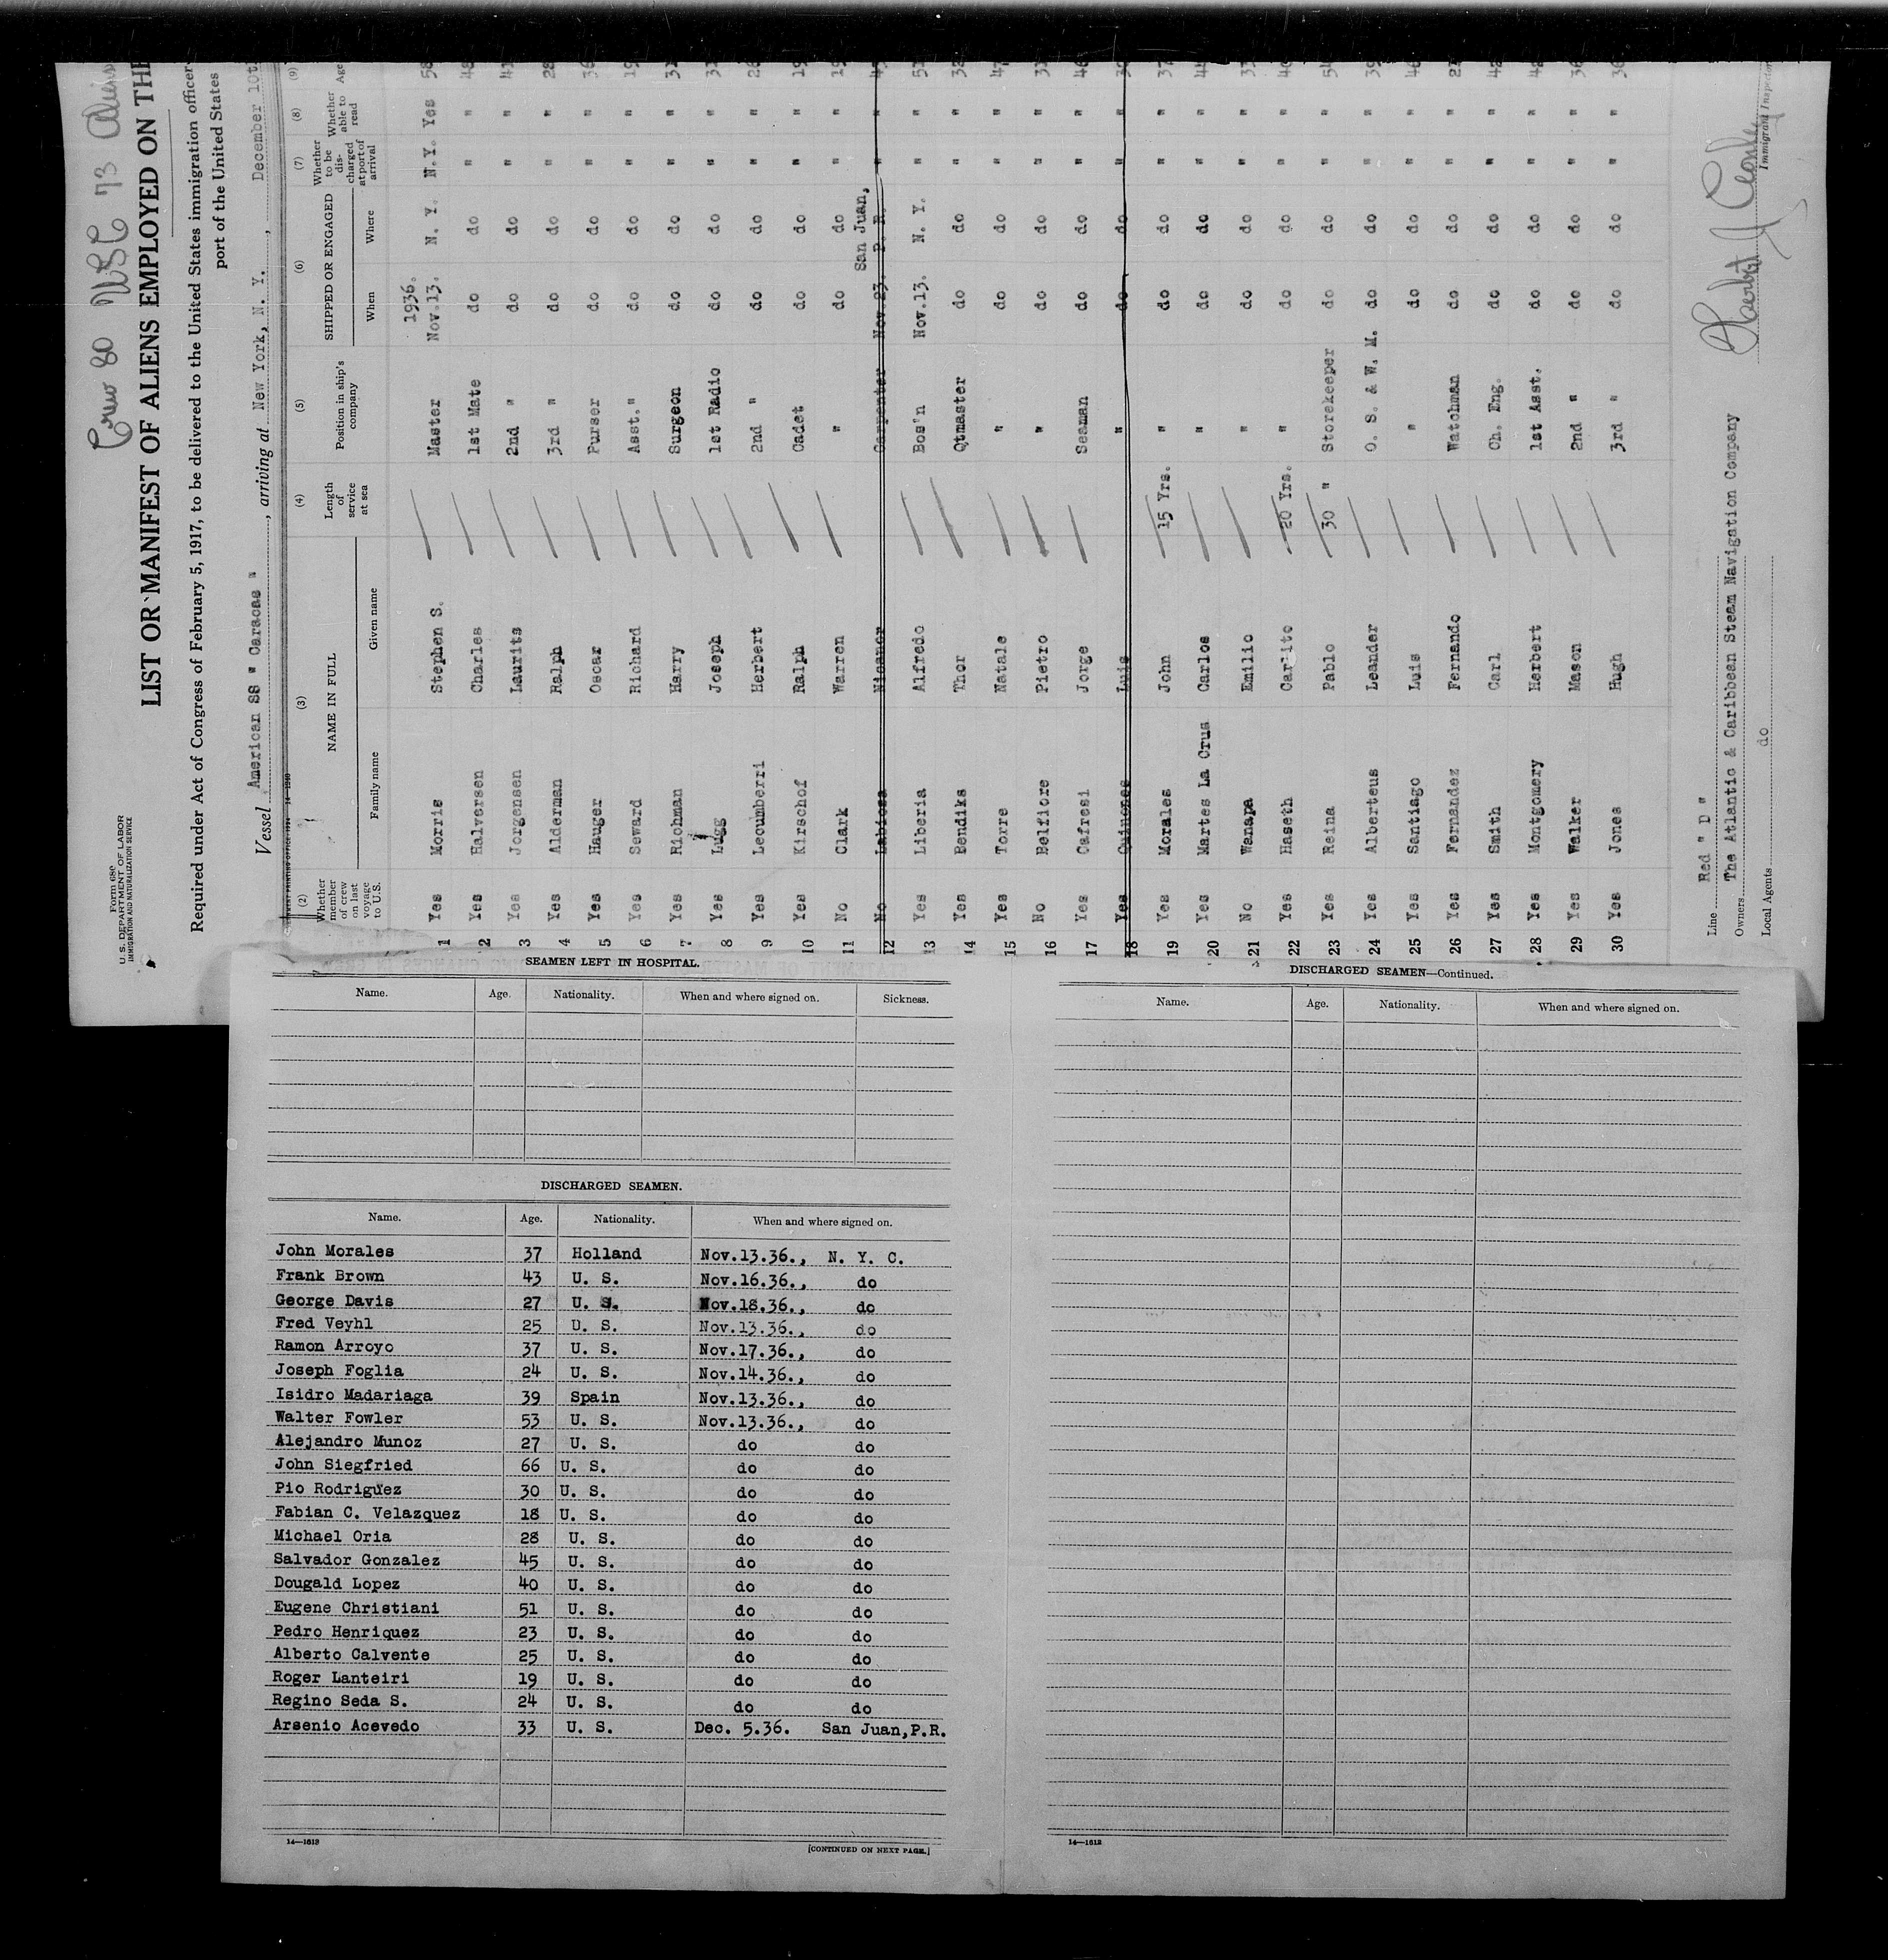 Crew 80 USC 73 Aliens
Form 680
U. S. DEPARTMENT OF LABOR
IMMIGRATION AND NATURALIZATION SERVICE
LIST OR MANIFEST OF ALIENS EMPLOYED ON THE
Required under Act of Congress of February 5, 1917, to be delivered to the United States immigration officer
port of the United States
Vessel American SS " Caracas " , arriving at New York, N. Y. , December 10t
(2) (3) (4) (5) (6) (7) (8) (9)
Whether member of crew on last voyage to U.S. NAME IN FULL Length of service at sea Position in ship's company SHIPPED OR ENGAGED Whether to be discharged at port of arrival Whether able to read Age
Family name Given name When Where
1936.
1 Yes Morris Stephen S. Master Nov.13. N. Y. N.Y. Yes 58
2 Yes Halversen Charles 1st Mate do do " " 48
3 Yes Jorgensen Laurits 2nd " do do " " 41
4 Yes Alderman Ralph 3rd " do do " " 28
5 Yes Hauger Oscar Purser do do " " 36
6 Yes Seward Richard Asst." do do " " 19
7 Yes Richman Harry Surgeon do do " " 31
8 Yes Lugg Joseph 1st Radio do do " " 31
9 Yes Lecumberri Herbert 2nd " do do " " 26
10 Yes Kirschof Ralph Cadet do do " " 19
11 No Clark Waren " do do " " 19
San Juan,
12 No Labiosa Nicanor Carpenter Nov.23. P. R. " " 45
13 Yes Liberia Alfredo Bos'n Nov.13. N. Y. " " 51
14 Yes Bendiks Thor Qtmaster do do " " 32
15 Yes Torre Natale " do do " " 47
16 No Belfiore Pietro " do do " " 31
17 Yes Cafresi Jorge Seaman do do " " 46
18 Yes Quinones Luis " do do " " 30
19 Yes Morales John 15 Yrs. " do do " " 37
20 Yes Martes La Crus Carlos " do do " " 44
21 No Wanapa Emilio " do do " " 33
22 Yes Haseth Carlito 20 Yrs. " do do " " 40
23 Yes Reina Pablo 30 " Storekeeper do do " " 54
24 Yes Alberteus Leander O. S. & W. M. do do " " 39
25 Yes Santiago Luis " do do " " 46
26 Yes Fernandez Fernando Watchman do do " " 27
27 Yes Smith Carl Ch. Eng. do do " " 42
28 Yes Montgomery Herbert 1st Asst. do do " " 42
29 Yes Walker Mason 2nd " do do " " 36
30 Yes Jones Hugh 3rd " do do " " 36
Line Red " D "
Owners The Atlantic & Caribbean Steam Navigation Company
Local Agents do
Herbert J
Immigrant Inspector
SEAMEN LEFT IN HOSPITAL.
Name. Age. Nationality. When and where signed on. Sickness.
DISCHARGED SEAMEN.
Name. Age. Nationality. When and where signed on.
John Morales 37 Holland Nov.13.36., N. Y. C.
Frank Brown 43 U. S. Nov.16.36., do
George Davis 27 U. S. Nov.18.36., do
Fred Veyhl 25 U. S. Nov.13.36., do
Ramon Arroyo 37 U. S. Nov.17.36., do
Joseph Foglia 24 U. S. Nov.14.36., do
Isidro Madariaga 39 Spain Nov.13.36., do
Walter Fowler 53 U. S. Nov.13.36., do
Alejandro Munoz 27 U. S. do do
John Siegfried 66 U. S. do do
Pio Rodriguez 30 U. S. do do
Fabian C. Velazquez 18 U. S. do do
Michael Oria 28 U. S. do do
Salvador Gonzalez 45 U. S. do do
Dougald Lopez 40 U. S. do do
Eugene Christiani 51 U. S. do do
Pedro Henriquez 23 U. S. do do
Alberto Calvente 25 U. S. do do
Roger Lanteiri 19 U. S. do do
Regino Seda S. 24 U. S. do do
Arsenio Acevedo 33 U. S. Dec. 5.36. San Juan,P.R.
14—1613
[CONTINUED ON NEXT PAGE.]
DISCHARGED SEAMEN—Continued.
Name. Age. Nationality. When and where signed on.
14—1613